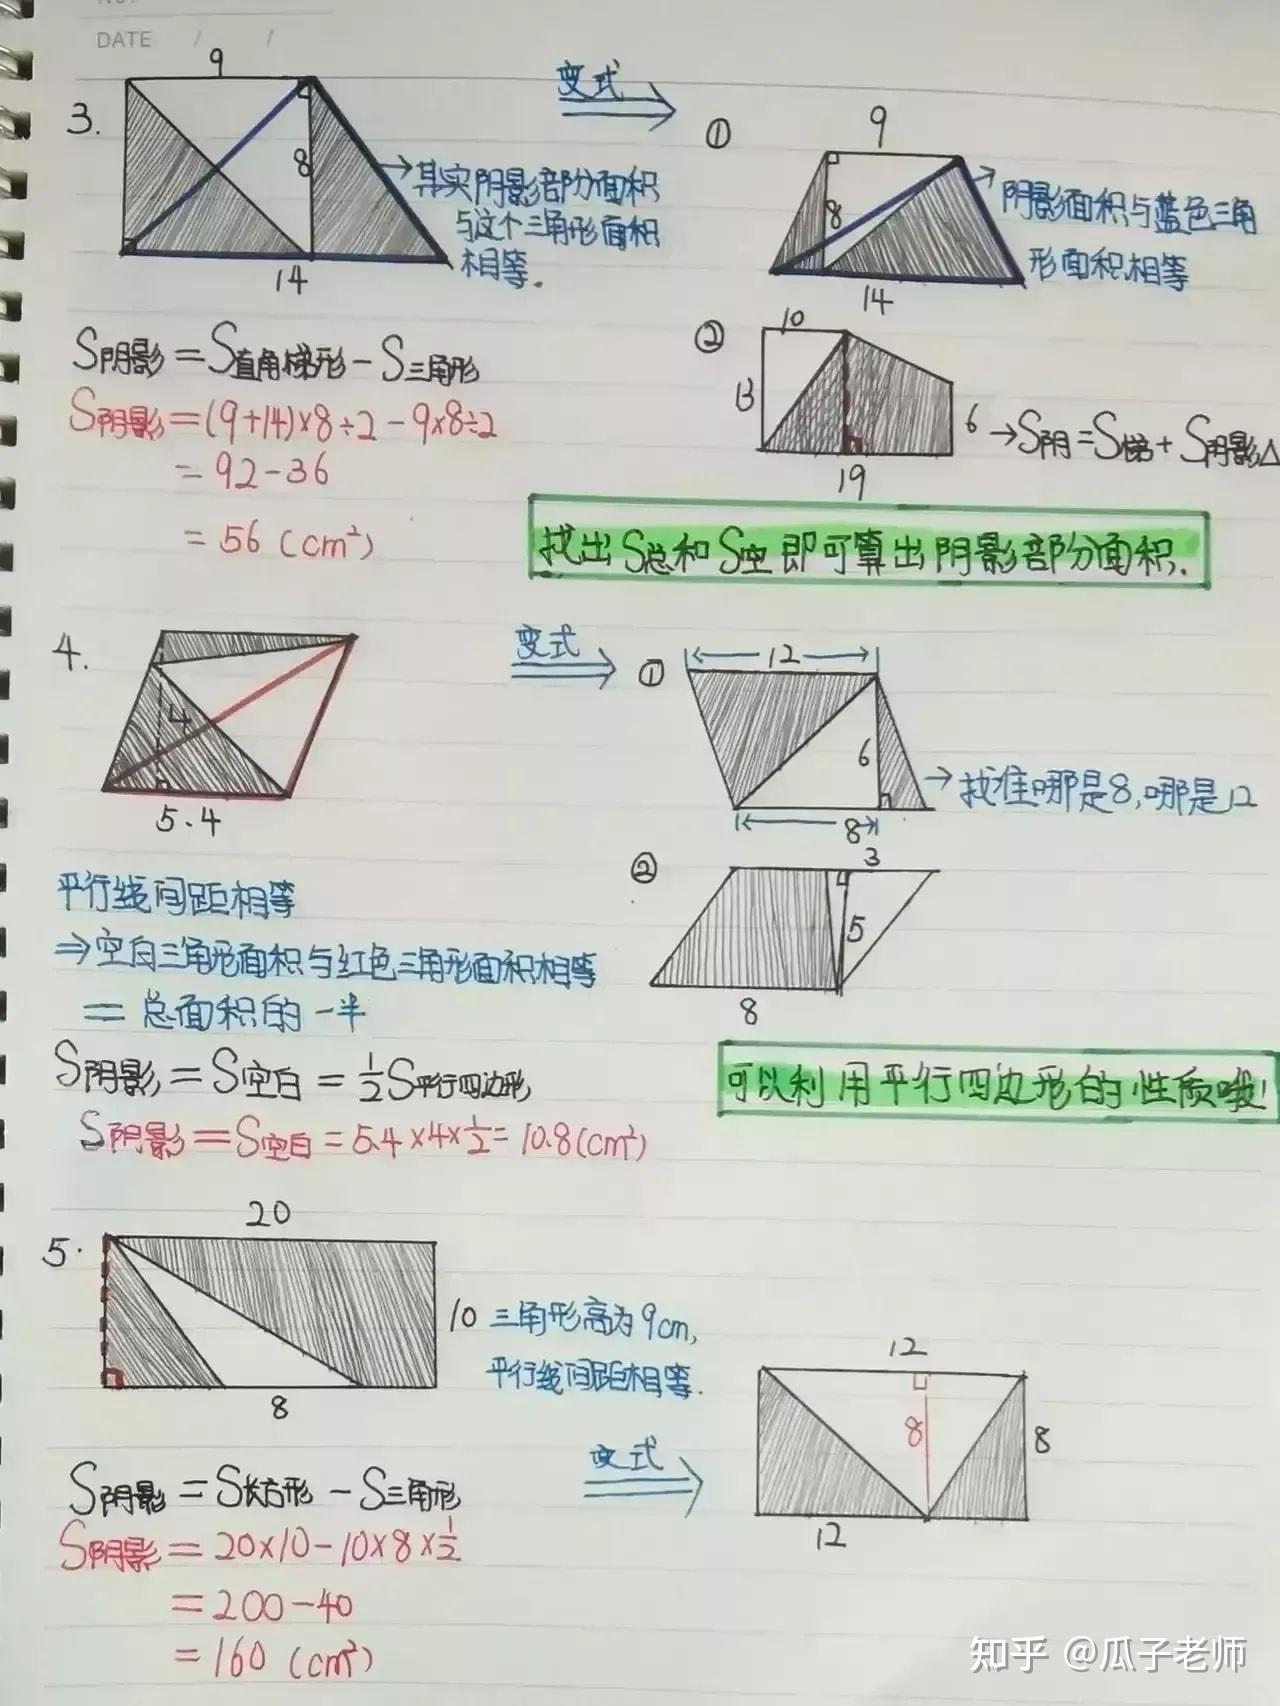 DATE / /
9
3.
8
14
其实阴影部分面积
与这个三角形面积
相等.
变式
①
9
8
14
阴影面积与蓝色三角
形面积相等
S阴影=S直角梯形-S三角形
S阴影=(9+14)×8÷2-9×8÷2
=92-36
=56(cm²)
②
10
13
6
19
→S阴=S梯+S阴影△
找出S总和S空即可算出阴影部分面积.
4.
4
5.4
变式
①
12
6
8
→找准哪是8,哪是12
平行线间距相等
⇒空白三角形面积与红色三角形面积相等
=总面积的一半
S阴影=S空白=½S平行四边形
S阴影=S空白=5.4×4×½=10.8(cm²)
②
3
5
8
可以利用平行四边形的性质哦!
5.
20
10
8
三角形高为9cm,
平行线间距相等.
变式
12
8
8
12
S阴影=S长方形-S三角形
S阴影=20×10-10×8×½
=200-40
=160(cm²)
知乎 @瓜子老师